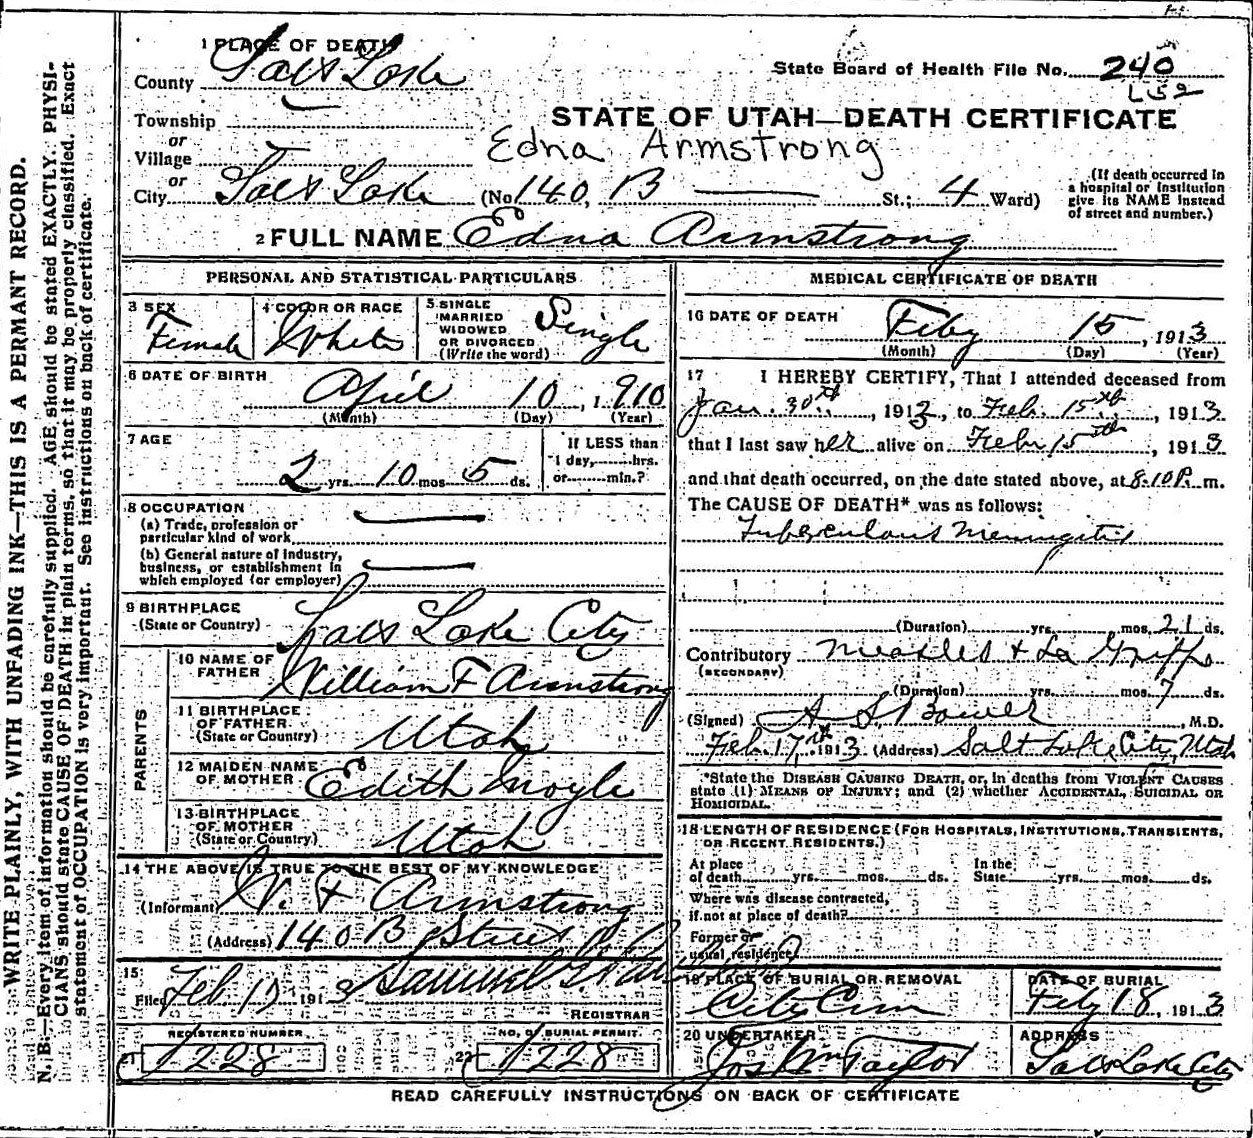 1 PLACE OF DEATH
County Salt Lake
State Board of Health File No. 240
L52
Township
or
Village
or
STATE OF UTAH—DEATH CERTIFICATE
Edna Armstrong
City Salt Lake (No 140, B St.; 4 Ward)
(If death occurred in a hospital or institution give its NAME instead of street and number.)
2 FULL NAME Edna Armstrong
PERSONAL AND STATISTICAL PARTICULARS
3 SEX Female
4 COLOR OR RACE White
5 SINGLE MARRIED WIDOWED OR DIVORCED (Write the word) Single
6 DATE OF BIRTH
April 10, 1910
(Month) (Day) (Year)
7 AGE
2 yrs. 10 mos 5 ds.
If LESS than 1 day, hrs. or min.?
8 OCCUPATION
(a) Trade, profession or particular kind of work
(b) General nature of industry, business, or establishment in which employed (or employer)
9 BIRTHPLACE (State or Country) Salt Lake City
PARENTS
10 NAME OF FATHER William F Armstrong
11 BIRTHPLACE OF FATHER (State or Country) Utah
12 MAIDEN NAME OF MOTHER Edith Moyle
13 BIRTHPLACE OF MOTHER (State or Country) Utah
14 THE ABOVE IS TRUE TO THE BEST OF MY KNOWLEDGE
(Informant) W. F Armstrong
(Address) 140 B Street
15
Filed Feb 17 1913 Samuel G
REGISTRAR
REGISTERED NUMBER
1228
NO. OF BURIAL PERMIT
1228
MEDICAL CERTIFICATE OF DEATH
16 DATE OF DEATH
Feby 15, 1913
(Month) (Day) (Year)
17 I HEREBY CERTIFY, That I attended deceased from
Jan. 30th, 1913, to Feb. 15th, 1913
that I last saw her alive on Febr 15th, 1913
and that death occurred, on the date stated above, at 8.10 P. m.
The CAUSE OF DEATH* was as follows:
Tuberculous Meningitis
(Duration) yrs. mos. 21 ds.
Contributory (SECONDARY) Measles + La Grippe
(Duration) yrs. mos. 7 ds.
(Signed) A S Bower, M.D.
Feb. 17th, 1913 (Address) Salt Lake City, Utah
*State the DISEASE CAUSING DEATH, or, in deaths from VIOLENT CAUSES
state (1) MEANS OF INJURY; and (2) whether ACCIDENTAL, SUICIDAL OR
HOMICIDAL.
18 LENGTH OF RESIDENCE (FOR HOSPITALS, INSTITUTIONS, TRANSIENTS,
OR RECENT RESIDENTS.)
At place of death yrs. mos. ds. In the State yrs. mos. ds.
Where was disease contracted,
if not at place of death?
Former or
usual residence
19 PLACE OF BURIAL OR REMOVAL
City Cem
DATE OF BURIAL
Feby 18, 1913
20 UNDERTAKER
Jos Wm Taylor
ADDRESS
Salt Lake City
READ CAREFULLY INSTRUCTIONS ON BACK OF CERTIFICATE
WRITE PLAINLY, WITH UNFADING INK—THIS IS A PERMANT RECORD.
N. B.—Every item of information should be carefully supplied. AGE should be stated EXACTLY. PHYSI-
CIANS should state CAUSE OF DEATH in plain terms, so that it may be properly classified. Exact
statement of OCCUPATION is very important. See instructions on back of certificate.